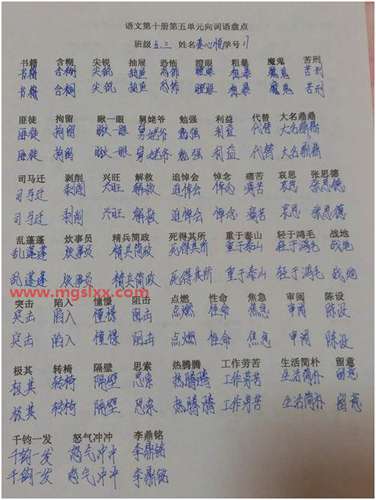 语文第十册第五单元向词语盘点
班级 五.三 姓名 心悦 学号 11
书籍 含糊 尖锐 抽屉 恐怖 瞪眼 粗暴 魔鬼 苦刑
书籍 含糊 尖锐 抽屉 恐怖 瞪眼 粗暴 魔鬼 苦刑
书籍 含糊 尖锐 抽屉 恐怖 瞪眼 粗暴 魔鬼 苦刑
匪徒 拘留 瞅一眼 舅姥爷 勉强 利益 代替 大名鼎鼎
匪徒 拘留 瞅一眼 舅姥爷 勉强 利益 代替 大名鼎鼎
匪徒 拘留 瞅一眼 舅姥爷 勉强 利益 代替 大名鼎鼎
司马迁 剥削 兴旺 解救 追悼会 悼念 痛苦 哀思 张思德
司马迁 剥削 兴旺 解救 追悼会 悼念 痛苦 哀思 张思德
司马迁 剥削 兴旺 解救 追悼会 悼念 痛苦 哀思 张思德
乱蓬蓬 炊事员 精兵简政 死得其所 重于泰山 轻于鸿毛 战地
乱蓬蓬 炊事员 精兵简政 死得其所 重于泰山 轻于鸿毛 战地
乱蓬蓬 炊事员 精兵简政 死得其所 重于泰山 轻于鸿毛 战地
突击 陷入 憧憬 阻击 点燃 性命 焦急 审阅 陈设
www.mgslxx.com
突击 陷入 憧憬 阻击 点燃 性命 焦急 审阅 陈设
突击 陷入 憧憬 阻击 点燃 性命 焦急 审阅 陈设
极其 转椅 隔壁 思索 热腾腾 工作劳苦 生活简朴 留意
极其 转椅 隔壁 思索 热腾腾 工作劳苦 生活简朴 留意
极其 转椅 隔壁 思索 热腾腾 工作劳苦 生活简朴 留意
千钧一发 怒气冲冲 李鼎铭
千钧一发 怒气冲冲 李鼎铭
千钧一发 怒气冲冲 李鼎铭